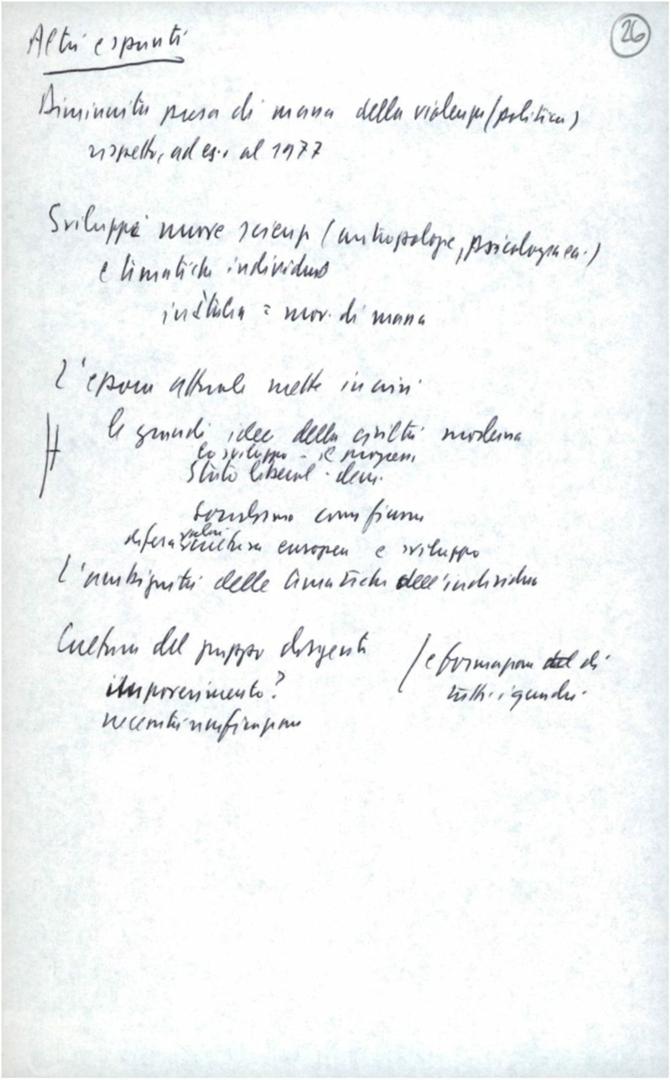 26
Altri spunti
Diminuita presa di massa della violenza (politica)
rispetto, ad es., al 1977
Sviluppi nuove scienze (antropologie, psicologia ecc.)
e tematiche individuo
in Italia = mov. di massa
L'epoca attuale mette in crisi
le grandi idee della civiltà moderna
lo sviluppo - il progresso
Stato liberal-dem.
socialismo
difesa valori cultura europea e sviluppo
L'ambiguità delle tematiche dell'individuo
Cultura del gruppo dirigente
impoverimento?
necessità
/ e formazione di
tutti i quadri.